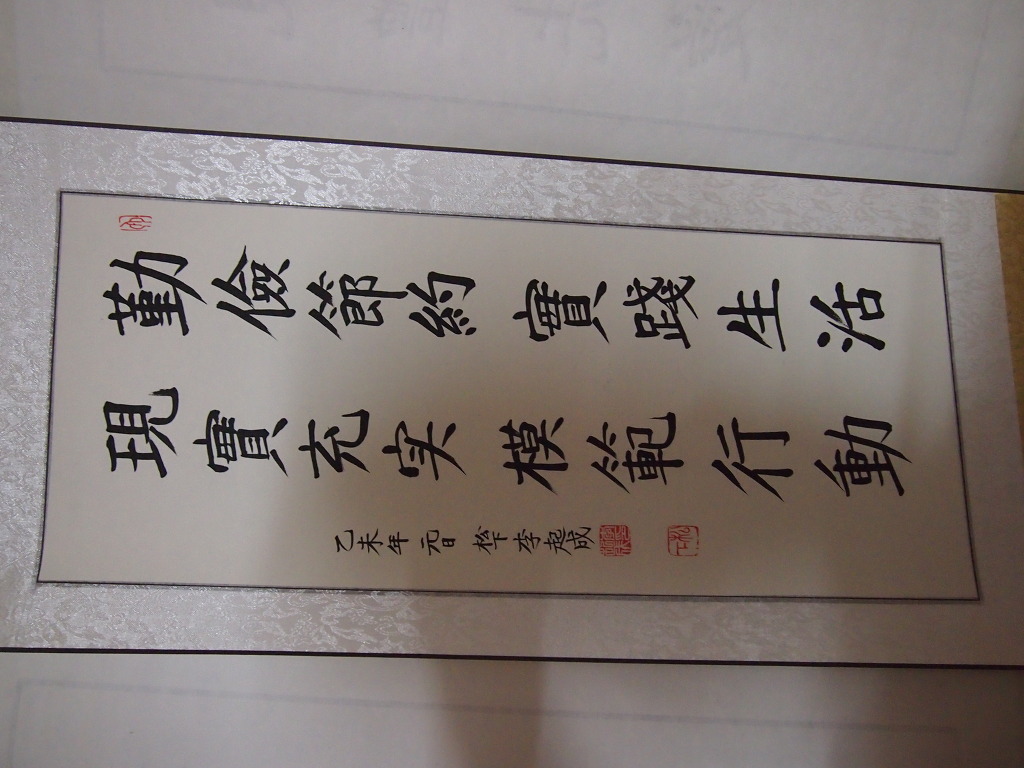 勤儉節約實踐生活
現實充实模範行動
乙未年 元日 松下李起成
松下